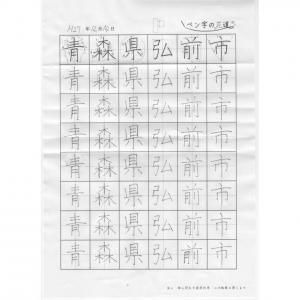 H27年12月10日
ペン字の
青森県弘前市
青森県弘前市
青森県弘前市
青森県弘前市
青森県弘前市
青森県弘前市
青森県弘前市
青森県弘前市